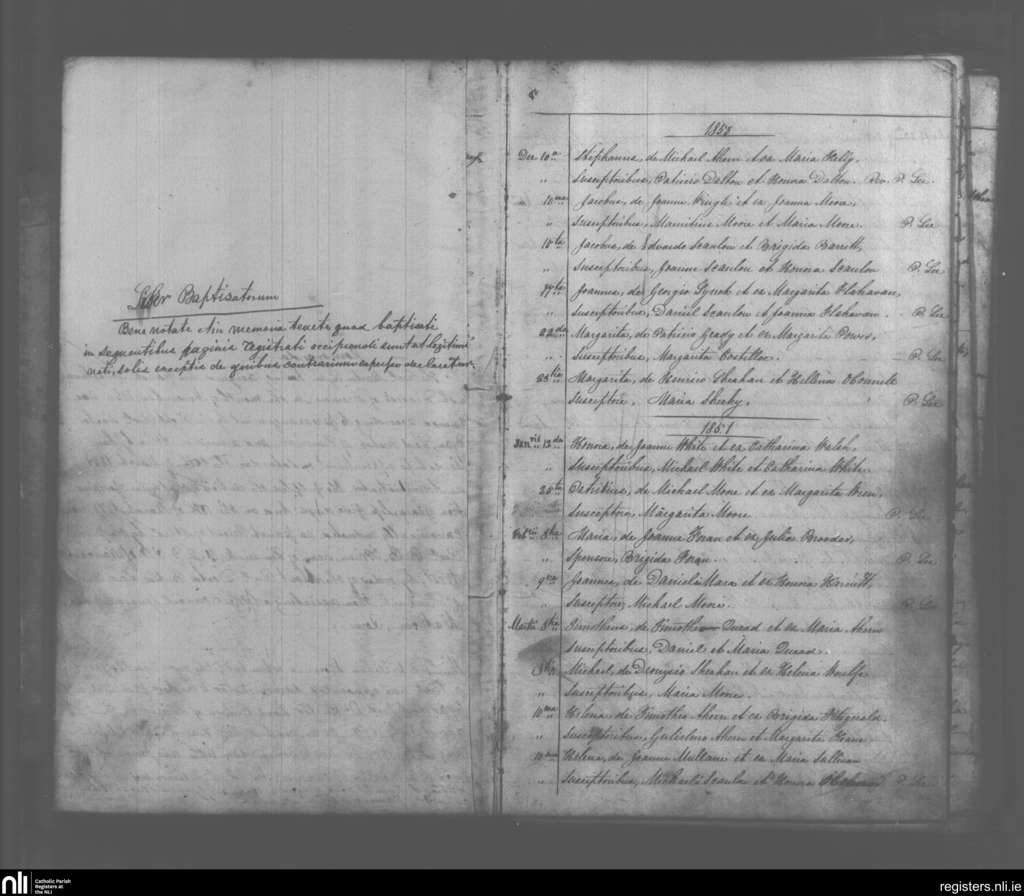 Liber Baptisatorum
Bene notate et in memoria tenete quod baptisati
in sequentibus paginis registrati accipiendi sunt at legitimi
nati, solis exceptis de quibus contrarium expresse declaratur.
1850
Dec 10o Stephanus, de Michael Ahern et ex Maria Kelly,
" Susceptoribus, Patricio Dalton et Honora Dalton. Rev. P. Lee.
" 10mo Jacobus, de Joanne Wingle et ex Joanna Moore,
" Susceptoribus, Mauritius Moore et Maria Moore. P. Lee
15to Jacobus, de Edvardo Scanlon et Brigida Barrett,
" Susceptoribus, Joanne Scanlon et Honora Scanlon P. Lee
17to Joannes, de Georgio Lynch et ex Margarita Olahavan,
" Susceptoribus, Daniel Scanlon et Joanna Olahavan. P. Lee
22do Margarita, de Patricio Grady et ex Margarita Power,
" Susceptoribus, Margarita Costelloe. P. Lee
23tio Margarita, de Henrico Sheahan et Hellena OConnell
Susceptore, Maria Sheehy. P. Lee
1851
Januarii 13do Honora, de Joanne White et ex Catharina Walsh,
" Susceptoribus, Michael White et Catharina White.
25to Patritius, de Michael Moore et ex Margarita
Susceptore, Margarita Moore P. Lee
8vo Maria, de Joanne Foran et ex Julia Brouder,
" Sponsore, Brigida Foran P. Lee
9no Joannes, de Daniel OMara et ex Honora
" Susceptore, Michael Moore. P. Lee
Martii 8vo Timotheus, de Timotheo Quead et ex Maria Ahern
Susceptoribus, Daniel et Maria Quead.
8vo Michael, de Dionysio Sheahan et ex Helena Woulfe,
" Susceptoribus, Maria Moore.
10mo Helena, de Timotheo Ahern et ex Brigida Fitzgerald.
" Susceptoribus, Gulielmo Ahern et Margarita
Helena, de Joanne Mullane et ex Maria Sullivan
" Susceptoribus, Michael Scanlon et Honora P. Lee
nli Catholic Parish
Registers at
the NLI
registers.nli.ie